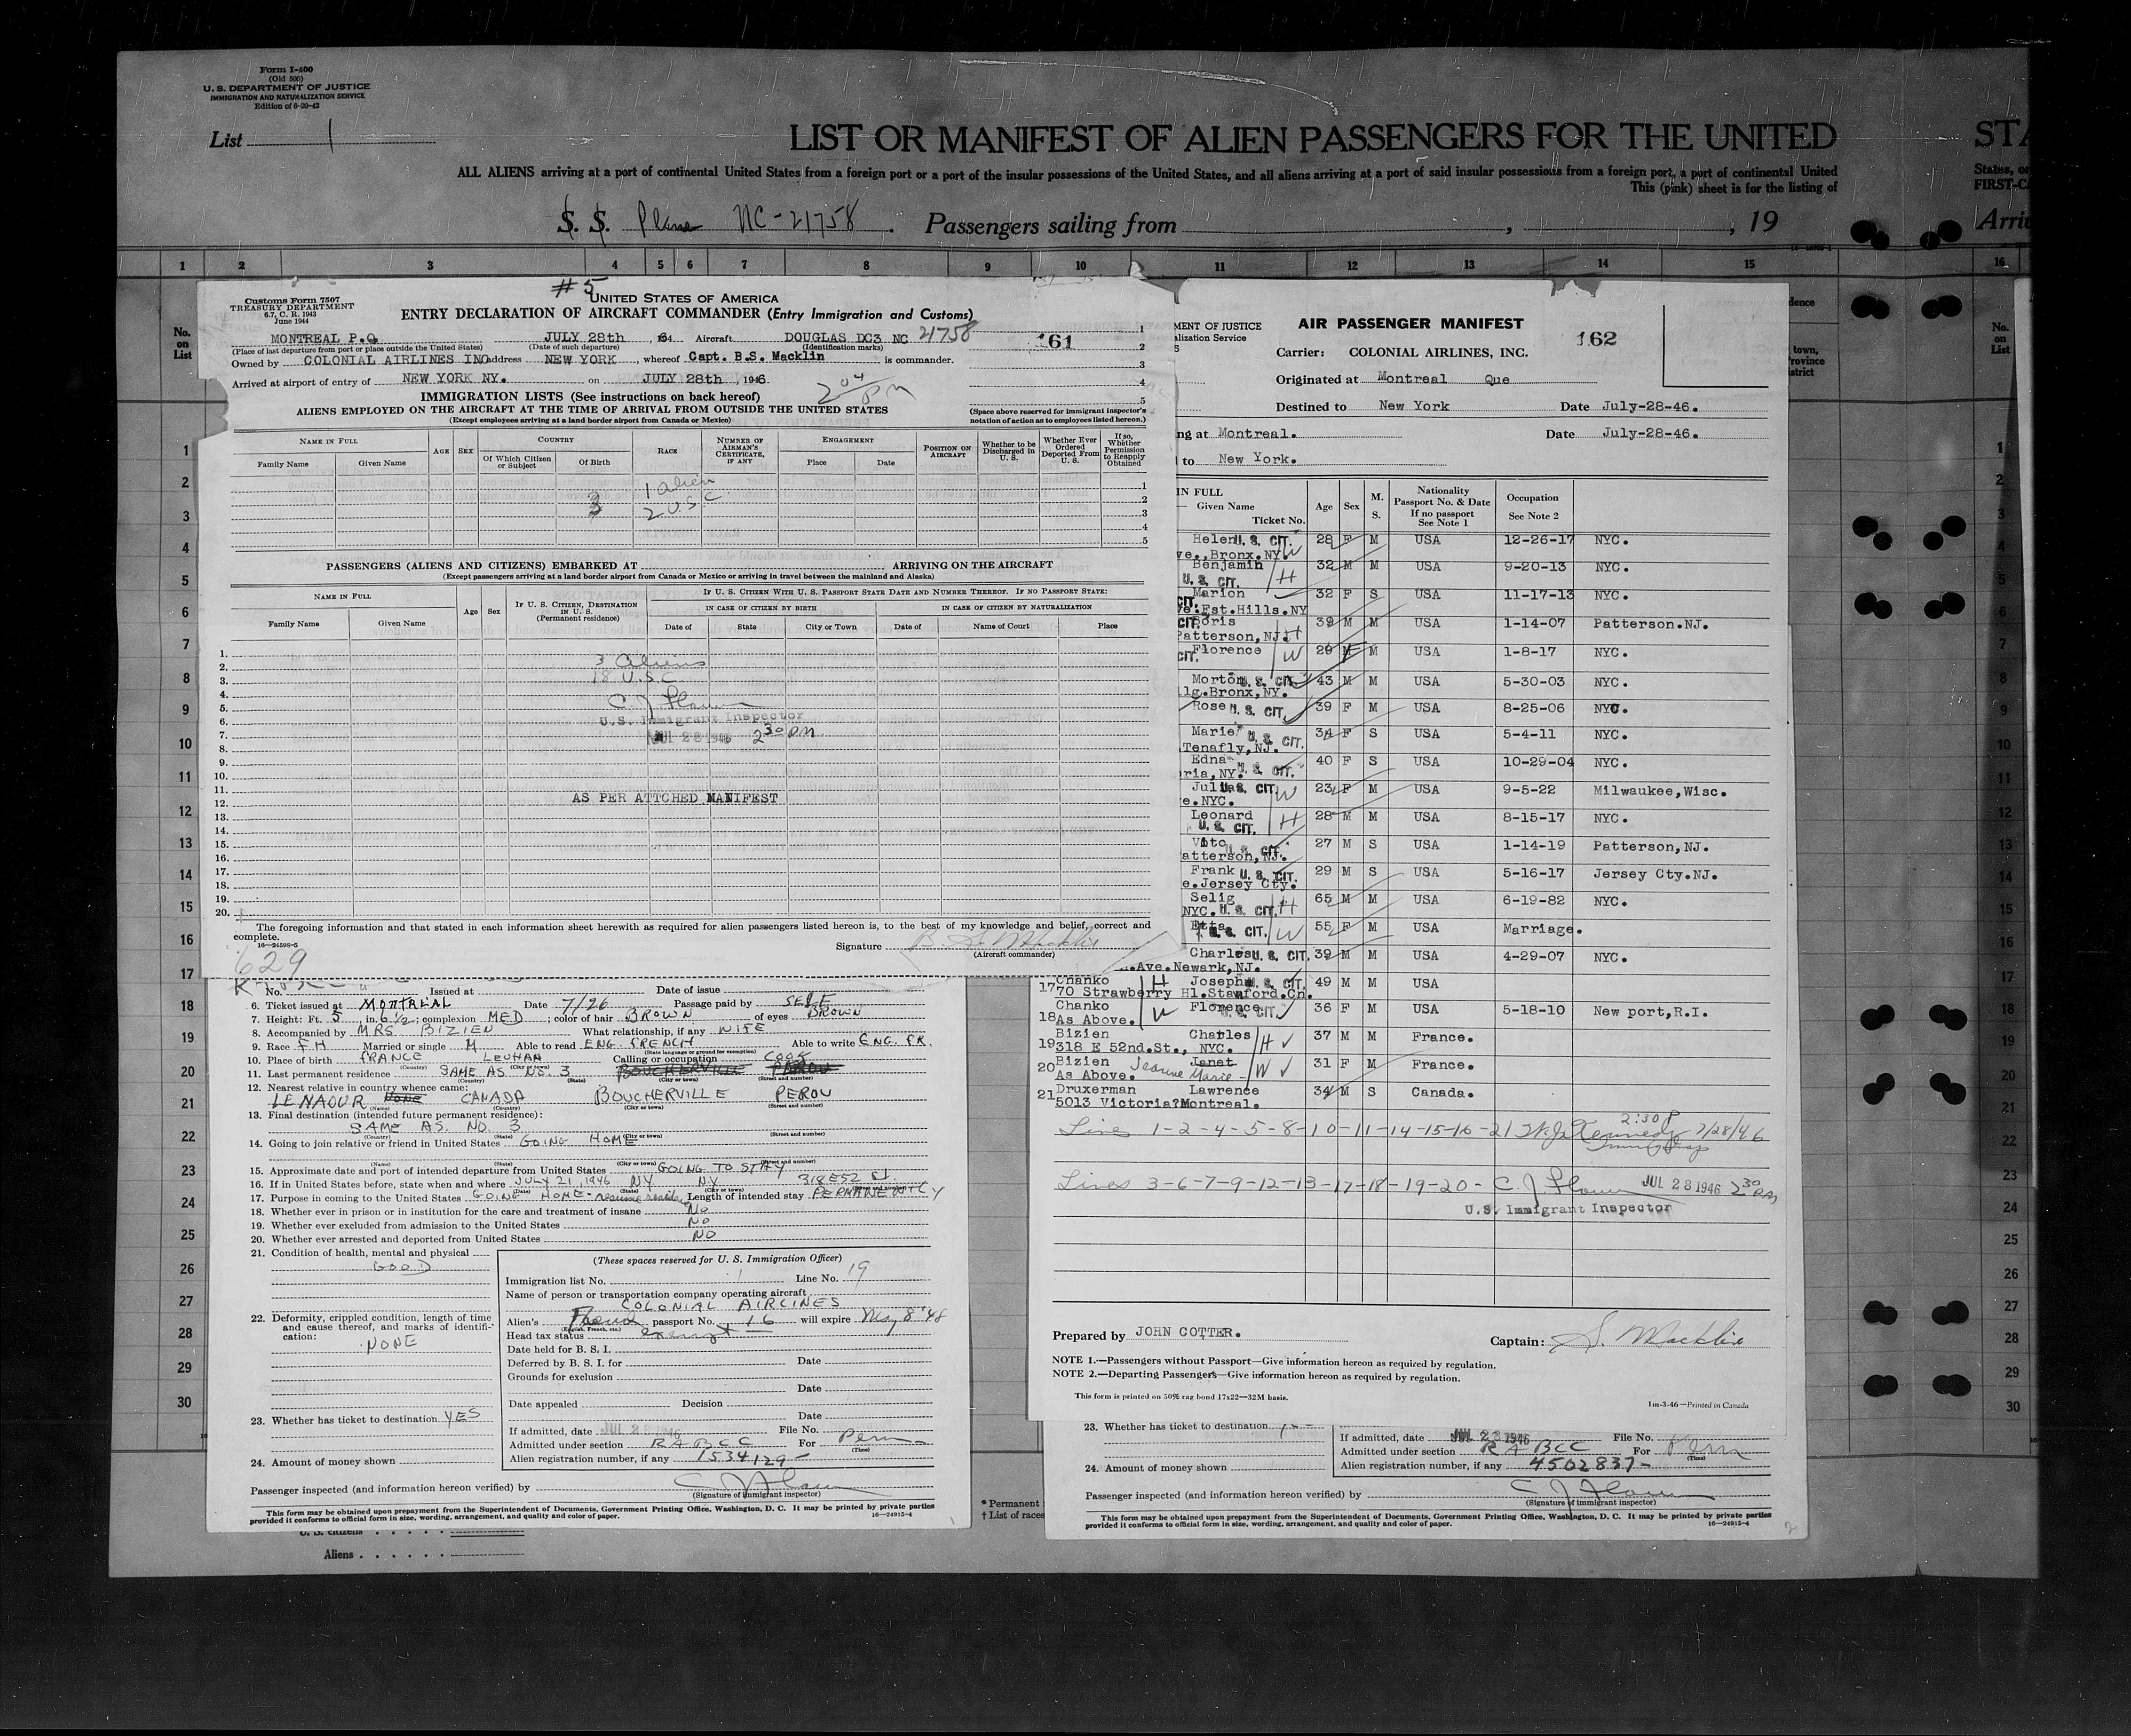 Form I-400
(Old 500)
U. S. DEPARTMENT OF JUSTICE
IMMIGRATION AND NATURALIZATION SERVICE
Edition of 6-20-42
List 1
LIST OR MANIFEST OF ALIEN PASSENGERS FOR THE UNITED
ALL ALIENS arriving at a port of continental United States from a foreign port or a port of the insular possessions of the United States, and all aliens arriving at a port of said insular possessions from a foreign port, a port of continental United
This (pink) sheet is for the listing of
S. S. Plane NC-21758. Passengers sailing from , , 19
STA
States, or
FIRST-CA
Arri
1 2 3 4 5 6 7 8 9 10 11 12 13 14 15 16
No. on List
1
2
3
4
5
6
7
8
9
10
11
12
13
14
15
16
17
18
19
20
21
22
23
24
25
26
27
28
29
30
#5
Customs Form 7507
TREASURY DEPARTMENT
6.7, C. R. 1943
June 1944
UNITED STATES OF AMERICA
ENTRY DECLARATION OF AIRCRAFT COMMANDER (Entry Immigration and Customs)
MONTREAL P.Q. JULY 28th , 194 Aircraft DOUGLAS DC3 NC 21758
(Place of last departure from port or place outside the United States) (Date of such departure) (Identification marks)
161
Owned by COLONIAL AIRLINES INC Address NEW YORK , whereof Capt. B.S. Macklin is commander.
Arrived at airport of entry of NEW YORK NY. on JULY 28th , 1946
2 04 PM
IMMIGRATION LISTS (See instructions on back hereof)
ALIENS EMPLOYED ON THE AIRCRAFT AT THE TIME OF ARRIVAL FROM OUTSIDE THE UNITED STATES
(Except employees arriving at a land border airport from Canada or Mexico)
(Space above reserved for immigrant inspector's notation of action as to employees listed hereon.)
NAME IN FULL
Family Name Given Name
AGE SEX
COUNTRY
Of Which Citizen or Subject Of Birth
RACE
NUMBER OF AIRMAN'S CERTIFICATE, IF ANY
ENGAGEMENT
Place Date
POSITION ON AIRCRAFT
Whether to be Discharged in U. S.
Whether Ever Ordered Deported From U. S.
If so, Whether Permission to Reapply Obtained
1 alien
3 2 U.S.C.
PASSENGERS (ALIENS AND CITIZENS) EMBARKED AT ARRIVING ON THE AIRCRAFT
(Except passengers arriving at a land border airport from Canada or Mexico or arriving in travel between the mainland and Alaska)
NAME IN FULL
Family Name Given Name
Age Sex
IF U. S. CITIZEN, DESTINATION IN U. S.
(Permanent residence)
IF U. S. CITIZEN WITH U. S. PASSPORT STATE DATE AND NUMBER THEREOF. IF NO PASSPORT STATE:
IN CASE OF CITIZEN BY BIRTH IN CASE OF CITIZEN BY NATURALIZATION
Date of State City or Town Date of Name of Court Place
1.
2. 3 Aliens
3. 18 U.S.C.
4.
5.
6. U.S. Immigrant Inspector
7. JUL 28 1946 2 30 PM
8.
9.
10.
11.
12. AS PER ATTCHED MANIFEST
13.
14.
15.
16.
17.
18.
19.
20.
The foregoing information and that stated in each information sheet herewith as required for alien passengers listed hereon is, to the best of my knowledge and belief, correct and complete.
16—24598-5
Signature B. S. Macklin
(Aircraft commander)
629
No. Issued at Date of issue
6. Ticket issued at MONTREAL Date 7/26 Passage paid by SELF
7. Height: Ft. 5, in. 6 1/2; complexion MED; color of hair BROWN of eyes BROWN
8. Accompanied by MRS BIZIEN What relationship, if any WIFE
9. Race FH Married or single M Able to read ENG. FRENCH Able to write ENG. FR.
(State language or ground for exemption)
10. Place of birth FRANCE LEUHAN Calling or occupation COOK
11. Last permanent residence SAME AS NO. 3 BOUCHERVILLE PEROU
12. Nearest relative in country whence came:
LE NAOUR CANADA BOUCHERVILLE PEROU
(Name) (Country) (City or town) (Street and number)
13. Final destination (intended future permanent residence):
SAME AS NO. 3
(Country) (State) (City or town) (Street and number)
14. Going to join relative or friend in United States GOING HOME
(Name) (State) (City or town) (Street and number)
15. Approximate date and port of intended departure from United States GOING TO STAY
16. If in United States before, state when and where JULY 21, 1946 NY NY 318 E 52 St.
17. Purpose in coming to the United States GOING HOME - Length of intended stay PERMANENTLY
18. Whether ever in prison or in institution for the care and treatment of insane No
19. Whether ever excluded from admission to the United States NO
20. Whether ever arrested and deported from United States NO
21. Condition of health, mental and physical
GOOD
22. Deformity, crippled condition, length of time and cause thereof, and marks of identification:
NONE
23. Whether has ticket to destination YES
24. Amount of money shown
(These spaces reserved for U. S. Immigration Officer)
Immigration list No. 1 Line No. 19
Name of person or transportation company operating aircraft
COLONIAL AIRLINES
Alien's French passport No. 16 will expire May 8 '48
(English, French, etc.)
Head tax status exempt
Date held for B. S. I.
Deferred by B. S. I. for Date
Grounds for exclusion
Date
Date appealed Decision
Date
If admitted, date JUL 28 1946 File No.
Admitted under section RA BCC For Perm
(Time)
Alien registration number, if any 1534129-
Passenger inspected (and information hereon verified) by
(Signature of immigrant inspector)
This form may be obtained upon prepayment from the Superintendent of Documents, Government Printing Office, Washington, D. C. It may be printed by private parties provided it conforms to official form in size, wording, arrangement, and quality and color of paper. 16—24915-4
U. S. citizens
Aliens
* Permanent
† List of races
MENT OF JUSTICE
alization Service
AIR PASSENGER MANIFEST
162
Carrier: COLONIAL AIRLINES, INC.
Originated at Montreal Que
Destined to New York Date July-28-46.
ng at Montreal. Date July-28-46.
to New York.
IN FULL
Given Name
Ticket No.
Age Sex M. S.
Nationality
Passport No. & Date
If no passport
See Note 1
Occupation
See Note 2
Helen U. S. CIT. 28 F M USA 12-26-17 NYC.
ve., Bronx.NY. W
Benjamin 32 M M USA 9-20-13 NYC.
U. S. CIT. H
Marion 32 F S USA 11-17-13 NYC.
CIT. ve.Fst.Hills.NY
CIT. Boris 39 M M USA 1-14-07 Patterson.NJ.
Patterson,NJ. H
CIT. Florence W 29 F M USA 1-8-17 NYC.
Morton U. S. CIT. 43 M M USA 5-30-03 NYC.
lg.Bronx,NY.
Rose U. S. CIT. 39 F M USA 8-25-06 NYC.
Marie U. S. CIT. 34 F S USA 5-4-11 NYC.
Tenafly,NJ.
Edna U. S. CIT. 40 F S USA 10-29-04 NYC.
ria,NY.
Julia U. S. CIT. W 23 F M USA 9-5-22 Milwaukee,Wisc.
e.NYC.
Leonard 28 M M USA 8-15-17 NYC.
U. S. CIT. H
Vito U. S. CIT. 27 M S USA 1-14-19 Patterson,NJ.
atterson,NJ.
Frank U. S. CIT. 29 M S USA 5-16-17 Jersey Cty.NJ.
e.Jersey Cty.
Selig 65 M M USA 6-19-82 NYC.
NYC. U. S. CIT. H
Etta U. S. CIT. W 55 F M USA Marriage.
Charles U. S. CIT. 39 M M USA 4-29-07 NYC.
.Ave.Newark,NJ.
17 Chanko H Joseph U. S. CIT. 49 M M USA
70 Strawberry Hl.Stamford.Cn.
Chanko Florence 36 F M USA 5-18-10 New port,R.I.
18 As Above. W U. S. CIT.
Bizien Charles H 37 M M France.
19 318 E 52nd.St., NYC.
20 Bizien Janet Jeanne Marie - W 31 F M France.
As Above.
Druxerman Lawrence 34 M S Canada.
21 5013 Victoria?Montreal.
Lines 1-2-4-5-8-10-11-14-15-16-21 W.J. Kennedy 2:30 P 7/28/46
Lines 3-6-7-9-12-13-17-18-19-20- JUL 28 1946 2 30 PM
U.S. Immigrant Inspector
Prepared by JOHN COTTER. Captain: S. Macklin
NOTE 1.—Passengers without Passport—Give information hereon as required by regulation.
NOTE 2.—Departing Passengers—Give information hereon as required by regulation.
This form is printed on 50% rag bond 17x22—32M basis.
1m-3-46—Printed in Canada
23. Whether has ticket to destination
24. Amount of money shown
If admitted, date JUL 28 1946 File No.
Admitted under section RA BCC For Perm
(Time)
Alien registration number, if any 4502837-
Passenger inspected (and information hereon verified) by
(Signature of immigrant inspector)
This form may be obtained upon prepayment from the Superintendent of Documents, Government Printing Office, Washington, D. C. It may be printed by private parties provided it conforms to official form in size, wording, arrangement, and quality and color of paper. 16—24915-4